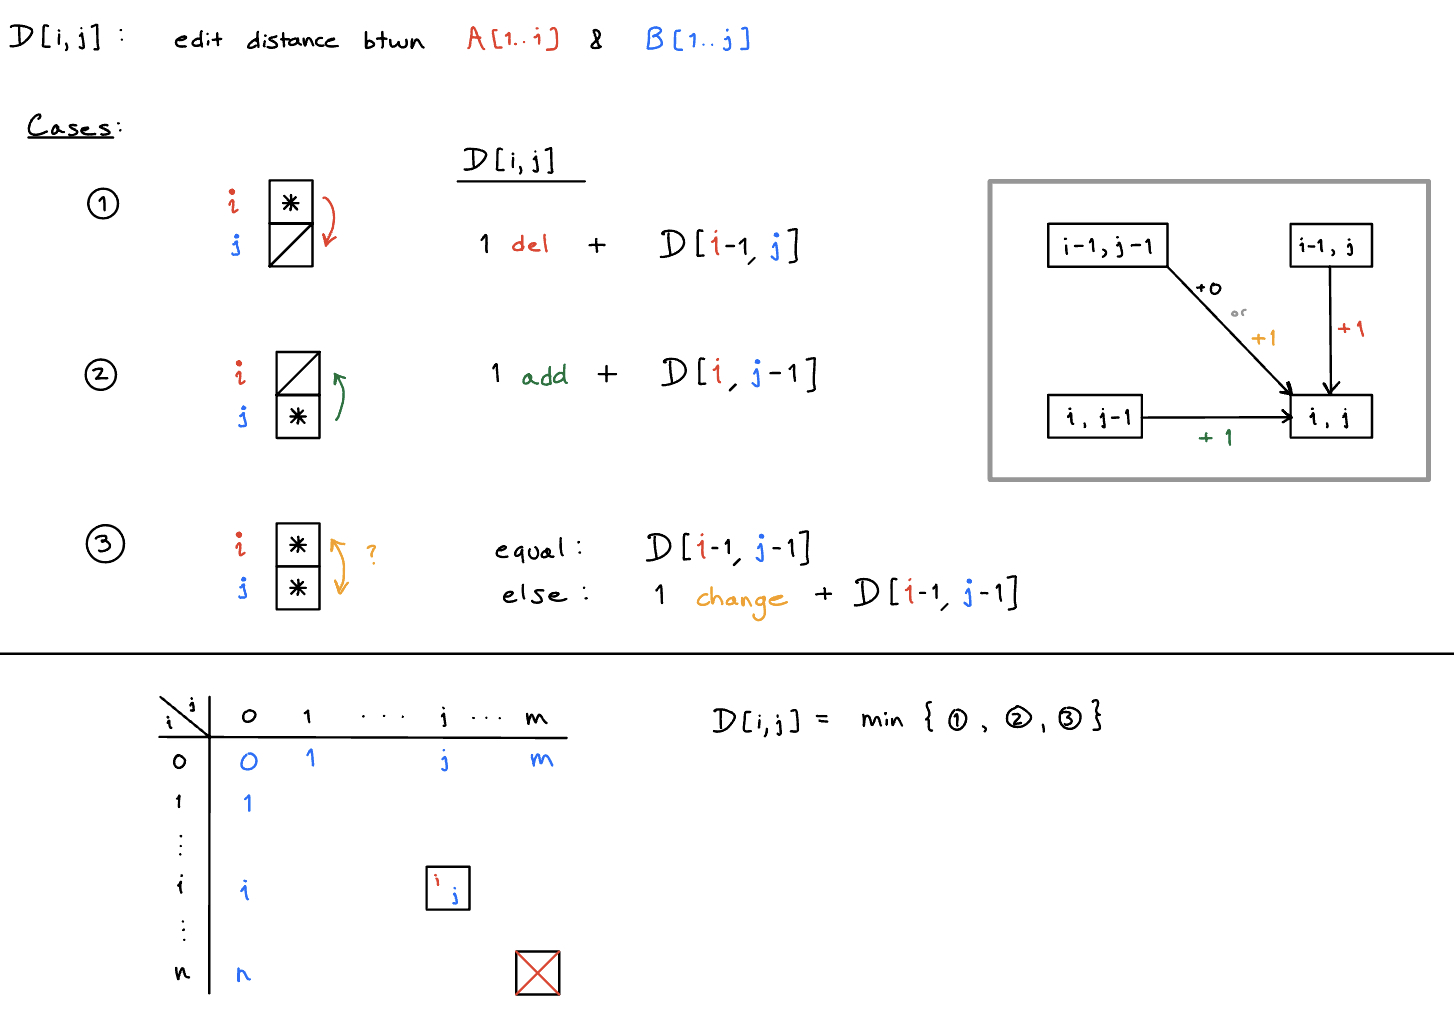 D[i,j] : edit distance btwn A[1..i] & B[1..j]
Cases:
D[i,j]
① i *
j 1 del + D[i-1, j]
② i 1 add + D[i, j-1]
j *
③ i * ? equal: D[i-1, j-1]
j * else: 1 change + D[i-1, j-1]
i-1, j-1 i-1, j
+0
or
+1 +1
i, j-1 i, j
+1
j
i 0 1 ... j ... m
0 0 1 j m
1 1
⋮
i i i j
⋮
n n
D[i,j] = min { ①, ②, ③ }